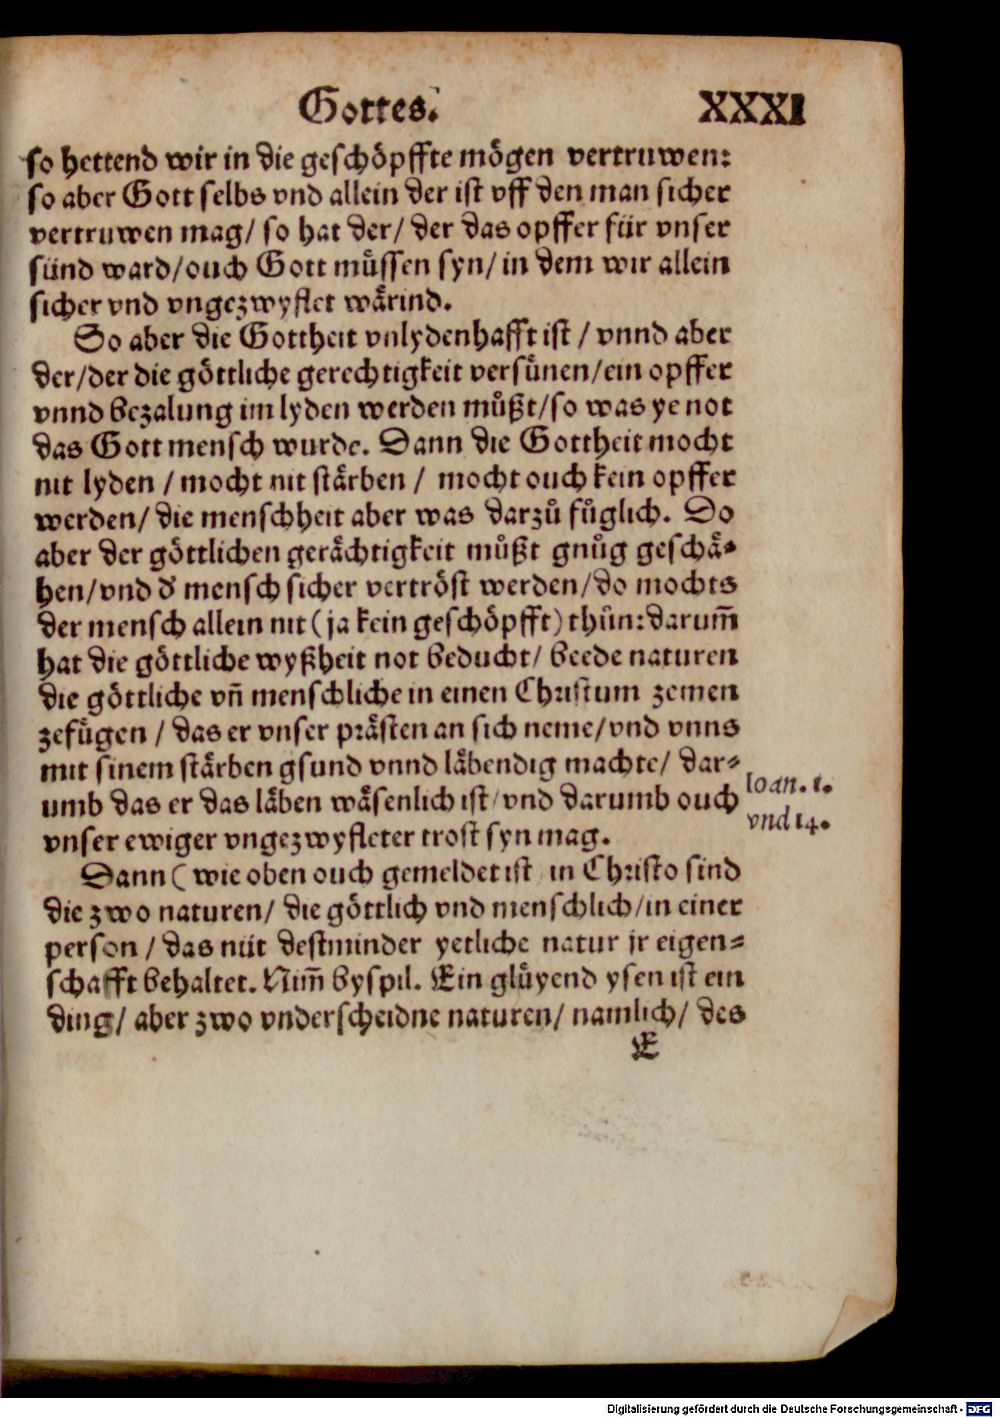 Gottes. XXXI
so hettend wir in die geschöpffte mögen vertruwen:
so aber Gott selbs vnd allein der ist vff den man sicher
vertruwen mag/ so hat der/ der das opffer für vnser
sünd ward/ouch Gott müssen syn/ in dem wir allein
sicher vnd vngezwyflet wårind.
So aber die Gottheit vnlydenhafft ist / vnnd aber
der/der die göttliche gerechtigkeit versůnen/ein opffer
vnnd bezalung im lyden werden můßt/so was ye not
das Gott mensch wurde. Dann die Gottheit mocht
nit lyden / mocht nit stårben / mocht ouch kein opffer
werden/ die menschheit aber was darzů fůglich. Do
aber der göttlichen geråchtigkeit můßt gnůg geschå⸗
hen/vnd d̕ mensch sicher vertröst werden/do mochts
der mensch allein nit (ja kein geschöpfft) thůn:darum̃
hat die göttliche wyßheit not beducht/ beede naturen
die göttliche vñ menschliche in einen Christum zemen
zefůgen / das er vnser pråsten an sich neme/vnd vnns
mit sinem stårben gsund vnnd låbendig machte/ dar⸗
umb das er das låben wåsenlich ist/vnd darumb ouch
vnser ewiger vngezwyfleter trost syn mag.
Ioan. 1.
vnd 14.
Dann ( wie oben ouch gemeldet ist in Christo sind
die zwo naturen/ die göttlich vnd menschlich/in einer
person / das nüt destminder yetliche natur jr eigen⸗
schafft behaltet. Nim̃ byspil. Ein glůyend ysen ist ein
ding/ aber zwo vnderscheidne naturen/ namlich/ des
E
Digitalisierung gefördert durch die Deutsche Forschungsgemeinschaft - DFG